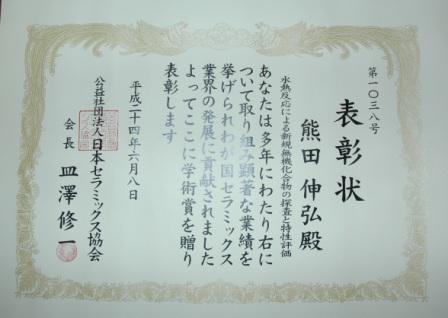 第一〇三八号
表彰状
熊田伸弘殿
水熱反応による新規無機化合物の探査と特性評価
あなたは多年にわたり右に
ついて取り組み顕著な業績を
挙げられわが国セラミックス
業界の発展に貢献されました
よってここに学術賞を贈り
表彰します
平成二十四年六月八日
公益社団法人日本セラミックス協会
会長 皿澤修一